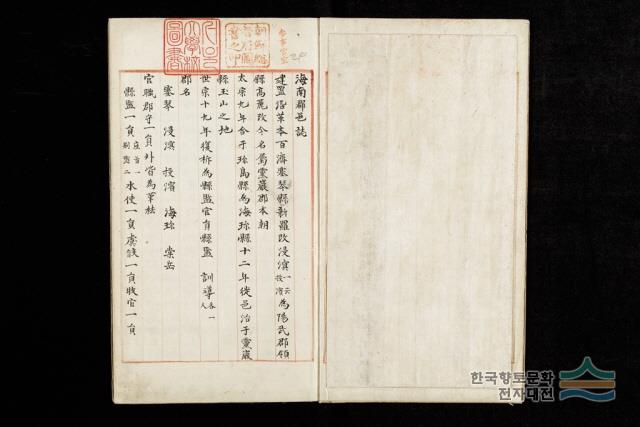 海南郡邑誌
建置沿革本百濟塞琴縣新羅改浸溟一云投濱爲陽武郡領
縣高麗改今名屬靈巖郡本朝
太宗九年合于珍島縣爲海珍縣十二年從邑治于靈巖
縣玉山之地
世宗十九年復析爲縣監官有縣監 訓導各一人
郡名
塞琴 浸溟 投濱 海珍 棠岳
官職郡守一員外皆爲革社
縣監一員座首一別監二水使一員虞候一員收官一員
한국향토문화
전자대전